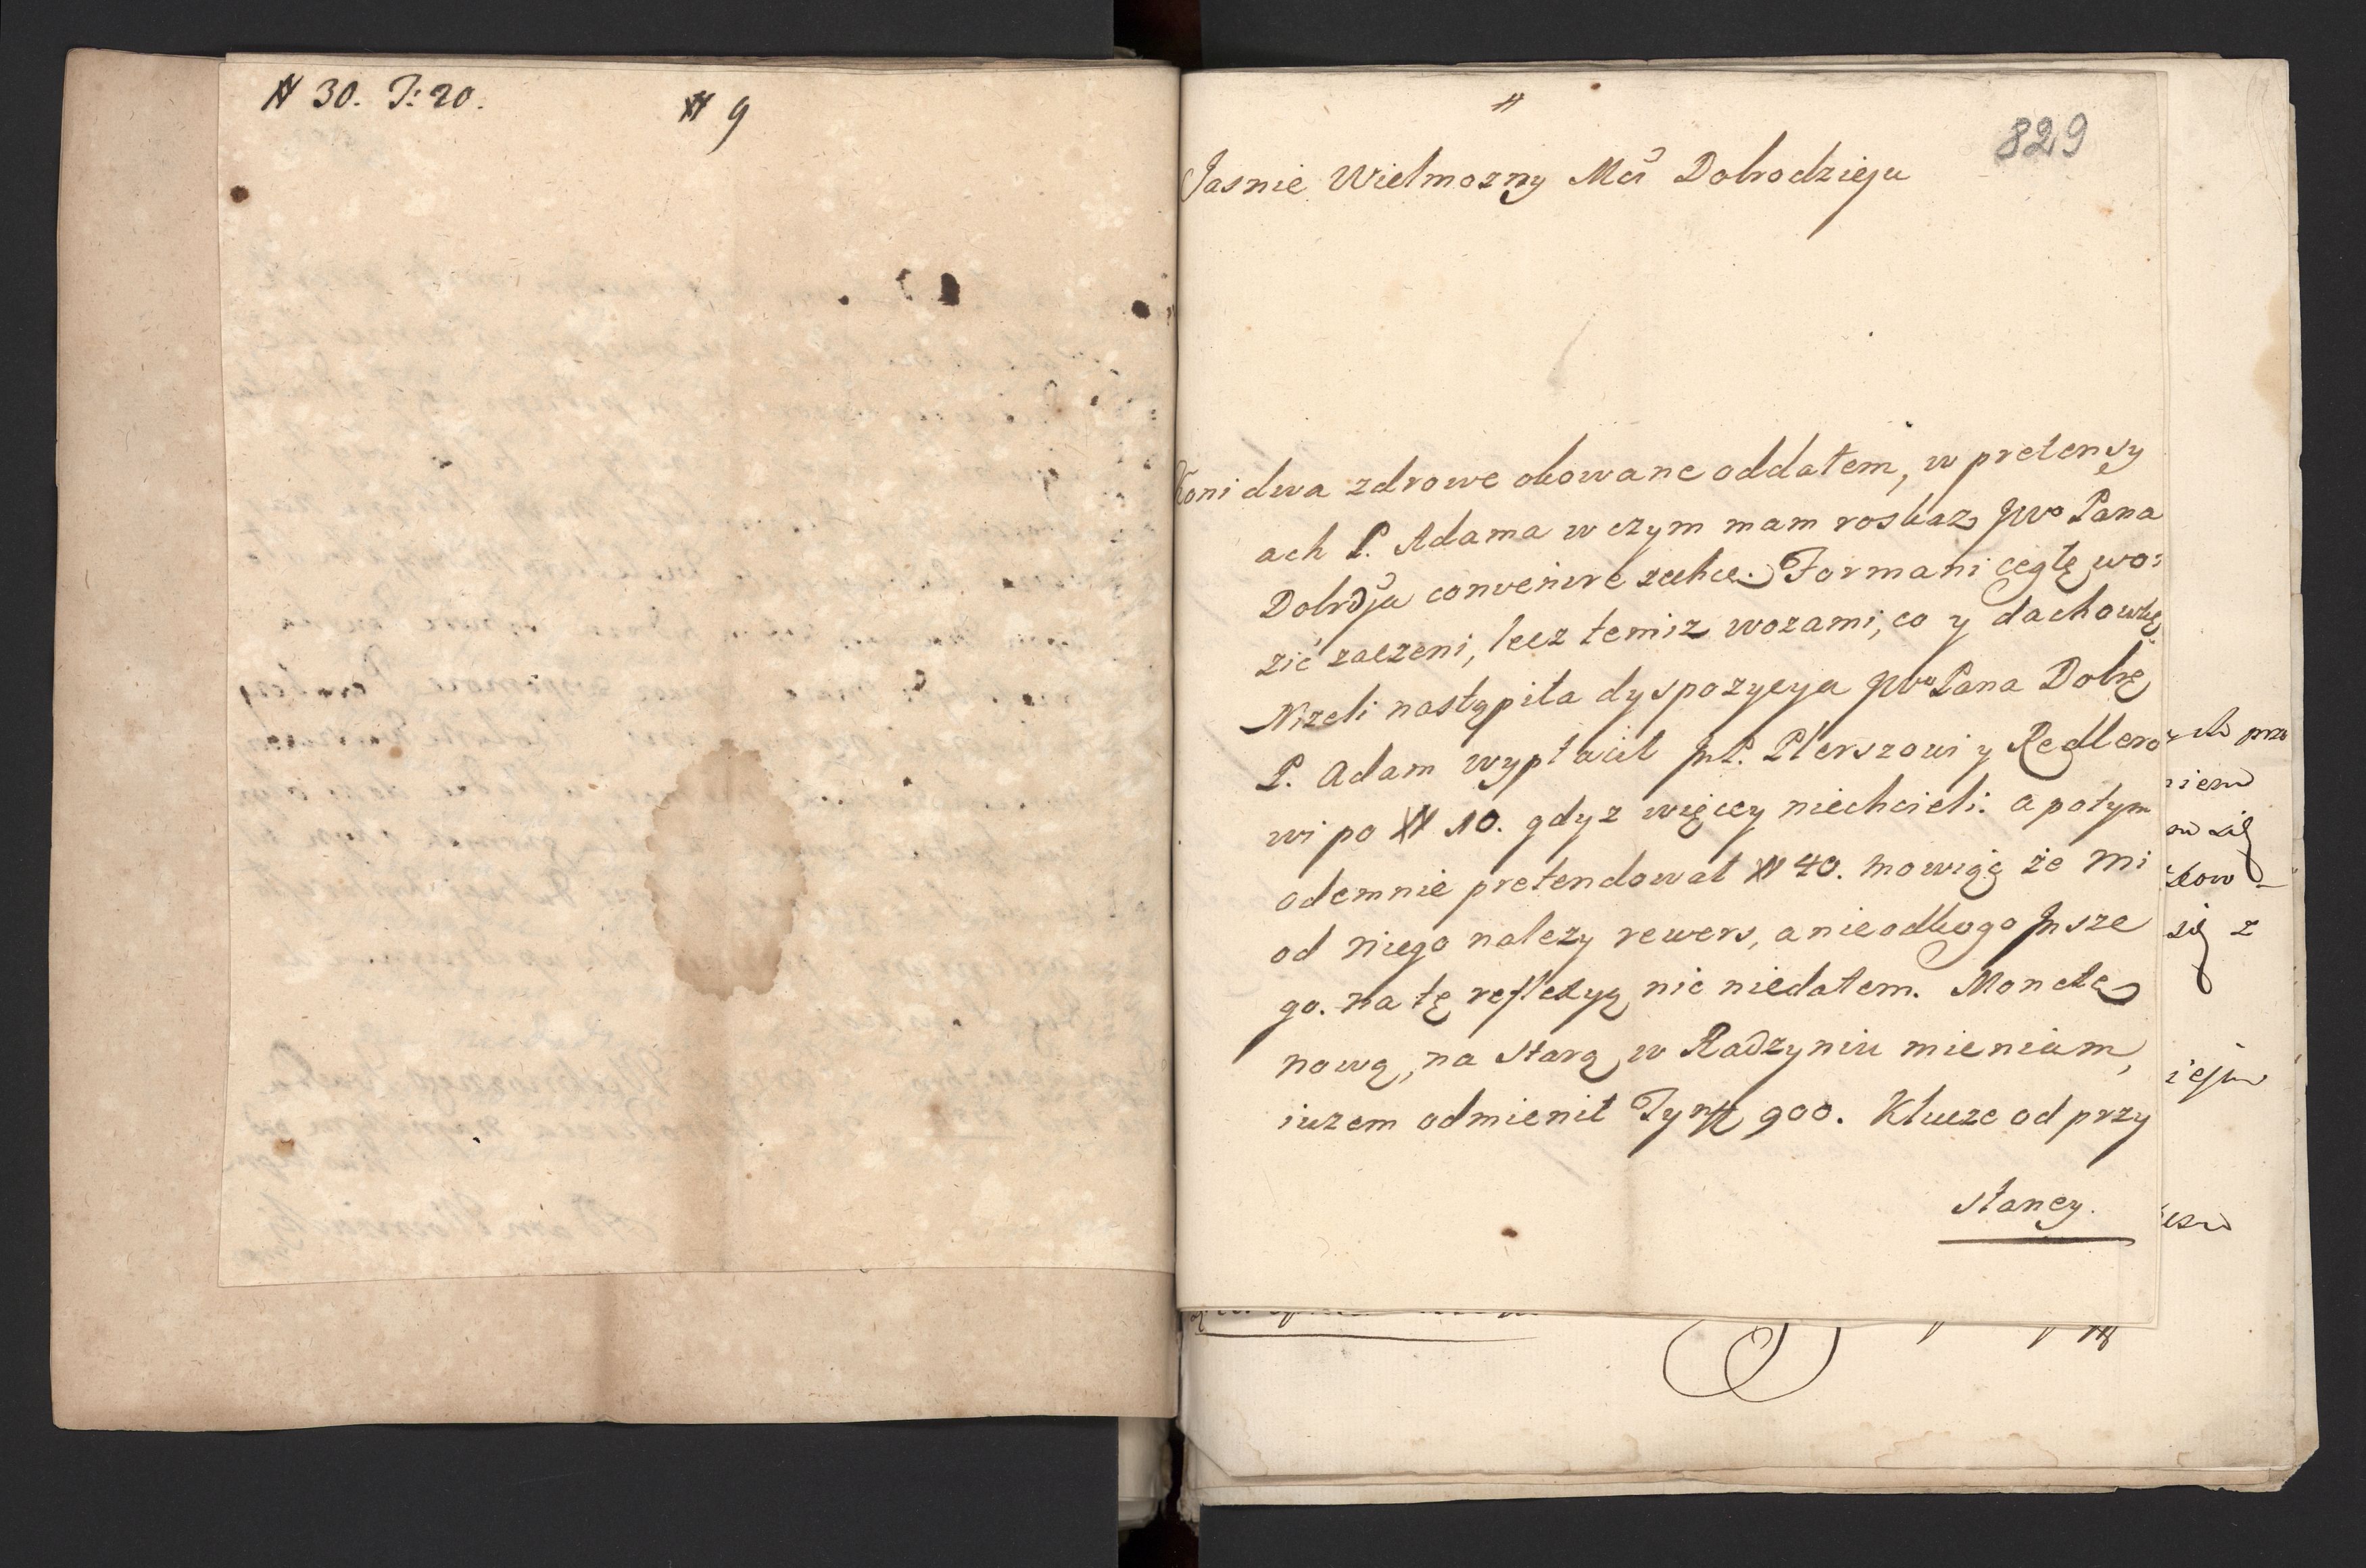 # 30. T: 20.
# 9
#
829
Jasnie Wielmozny Mci Dobrodzieju
Koni dwa zdrowe okowane oddałem, w pretensy
ach P. Adama w czym mam roskaz JWo Pana
Dobrdja convenire zechce. Formani cegłę wo:
zić zaczeni, lecz temiz wozami, co y dachowkę
Nizeli nastąpiła dyspozycya JWo Pana Dobrę
P. Adam wypłacił P. Pterszowi y Redlero
wi po # 10. gdyz więcey niechcieli: a potym
odemnie pretendował # 40. mowiąc że mi
od niego nalezy rewers, a nieodkogo Jnsze
go. na tę reflexyą nic niedałem. Monetę
nową, na Starą w Radzyniu mieniam,
iuzem odmienił Tynf 900. Klucze od przy
stancy.
niem
się
kow
się z
ieju